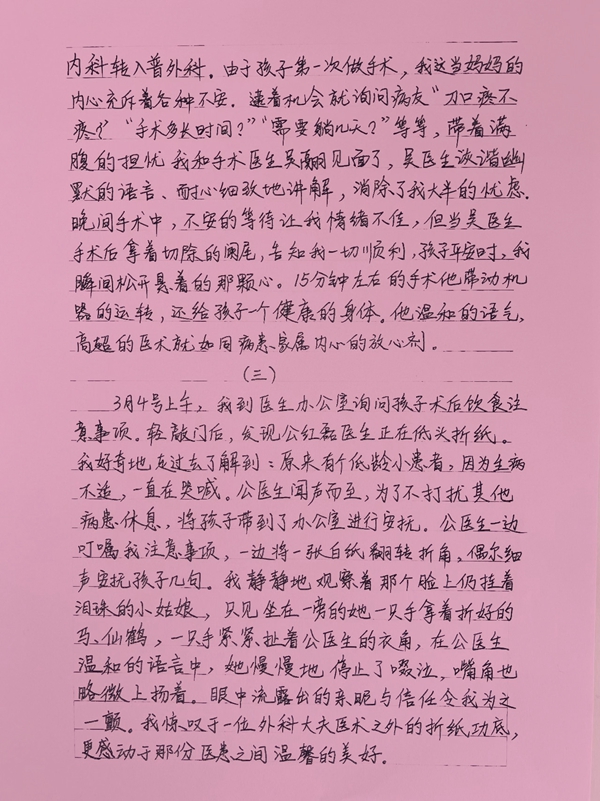 内科转入普外科。由于孩子第一次做手术，我这当妈妈的
内心充斥着各种不安。逮着机会就询问病友“刀口疼不
疼？”“手术多长时间？”“需要躺几天？”等等，带着满
腹的担忧我和手术医生吴翩见面了，吴医生诙谐幽
默的语言、耐心细致地讲解，消除了我大半的忧虑.
晚间手术中，不安的等待让我情绪不佳，但当吴医生
手术后拿着切除的阑尾，告知我一切顺利，孩子平安时，我
瞬间松开悬着的那颗心。15分钟左右的手术他带动机
器的运转，还给孩子一个健康的身体。他温和的语气，
高超的医术就如同病患家属内心的放心剂。
（三）
3月4号上午，我到医生办公室询问孩子术后饮食注
意事项。轻敲门后，发现公红磊医生正在低头折纸。
我好奇地走过去了解到：原来有个低龄小患者，因为生病
不适，一直在哭喊。公医生闻声而至，为了不打扰其他
病患休息，将孩子带到了办公室进行安抚。公医生一边
叮嘱我注意事项，一边将一张白纸翻转折角，偶尔细
声安抚孩子几句。我静静地观察着那个脸上仍挂着
泪珠的小姑娘，只见坐在一旁的她一只手拿着折好的
马、仙鹤，一只手紧紧扯着公医生的衣角，在公医生
温和的语言中，她慢慢地停止了啜泣，嘴角也
略微上扬着。眼中流露出的亲昵与信任令我为之
一颤。我惊叹于一位外科大夫医术之外的折纸功底，
更感动于那份医患之间温馨的美好。